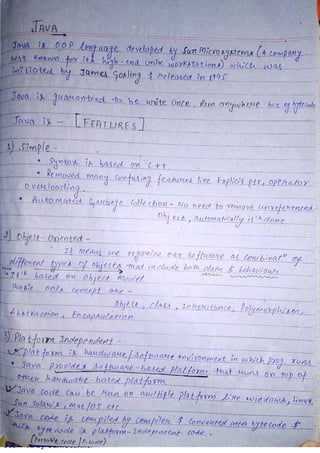 JAVA
Java is OOP language developed by Sun Microsystems (A company
best known for its high-end unix workstations) which was
initiated by James Gosling & released in 1995
Java is guaranteed to be write once, Run anywhere bcz of bytecode
Java is - [FEATURES]
1) Simple -
• Syntax is based on C++.
• Removed many confusing features like Explicit ptr, operator
overloading.
• Automated Garbage Collection - No need to remove unreferenced
object, automatically it's done
2) Object-Oriented -
It means we organize our software as combinatn of
different types of objects that include both data & behaviour.
It is based on Object Model
Basic OOPs concept are -
Object, Class, Inheritance, Polymorphism,
Abstraction, Encapsulation.
3) Platform Independent -
platform is hardware/software environment in which prog. runs
• Java provides software-based platform that runs on top of
other hardware based platform
Java Code can be run on multiple platform like windows, linux
Sun Solaris, Mac/OS etc
Java code is compiled by compiler & converted into bytecode &
this bytecode is platform-Independent code.
(Portable code / P.code)